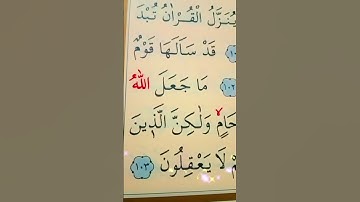 يُنَزَّلُ الْقُرْاٰنُ تُبْدَ
قَدْ سَاَلَهَا قَوْمٌ
١٠٢ مَا جَعَلَ اللّٰهُ
حَامٍۙ وَلٰكِنَّ الَّذ۪ينَ
لَا يَعْقِلُونَ ١٠٣